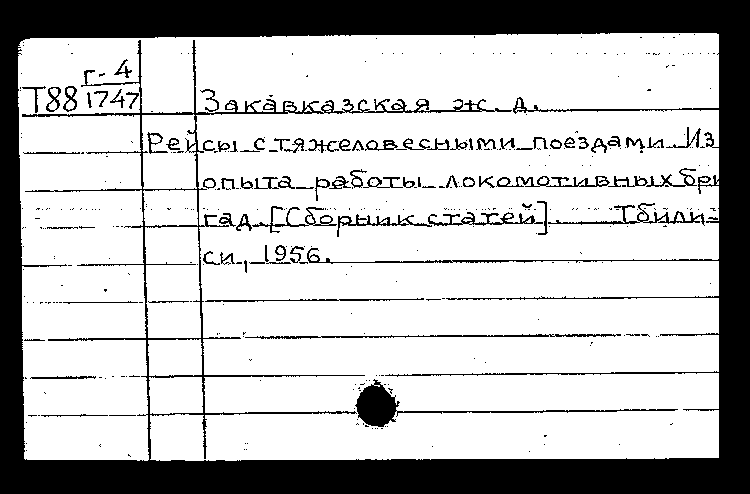 г-4
Т88 1747
Закавказская ж. д.
Рейсы с тяжеловесными поездами. Из
опыта работы локомотивных бри
гад. [Сборник статей]. Тбили-
си, 1956.